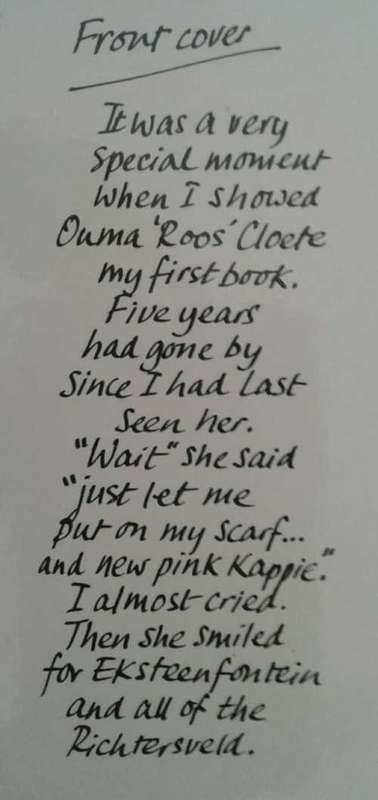 Front cover
It was a very
special moment
when I showed
Ouma 'Roos' Cloete
my first book.
Five years
had gone by
since I had last
seen her.
"Wait" she said
"just let me
put on my scarf...
and new pink Kappie."
I almost cried.
Then she smiled
for Eksteenfontein
and all of the
Richtersveld.